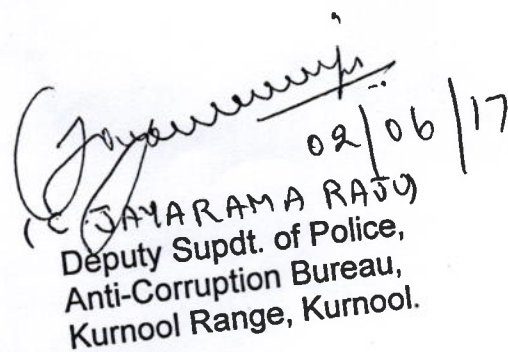 02/06/17
(C JAYARAMA RAJU)
Deputy Supdt. of Police,
Anti-Corruption Bureau,
Kurnool Range, Kurnool.